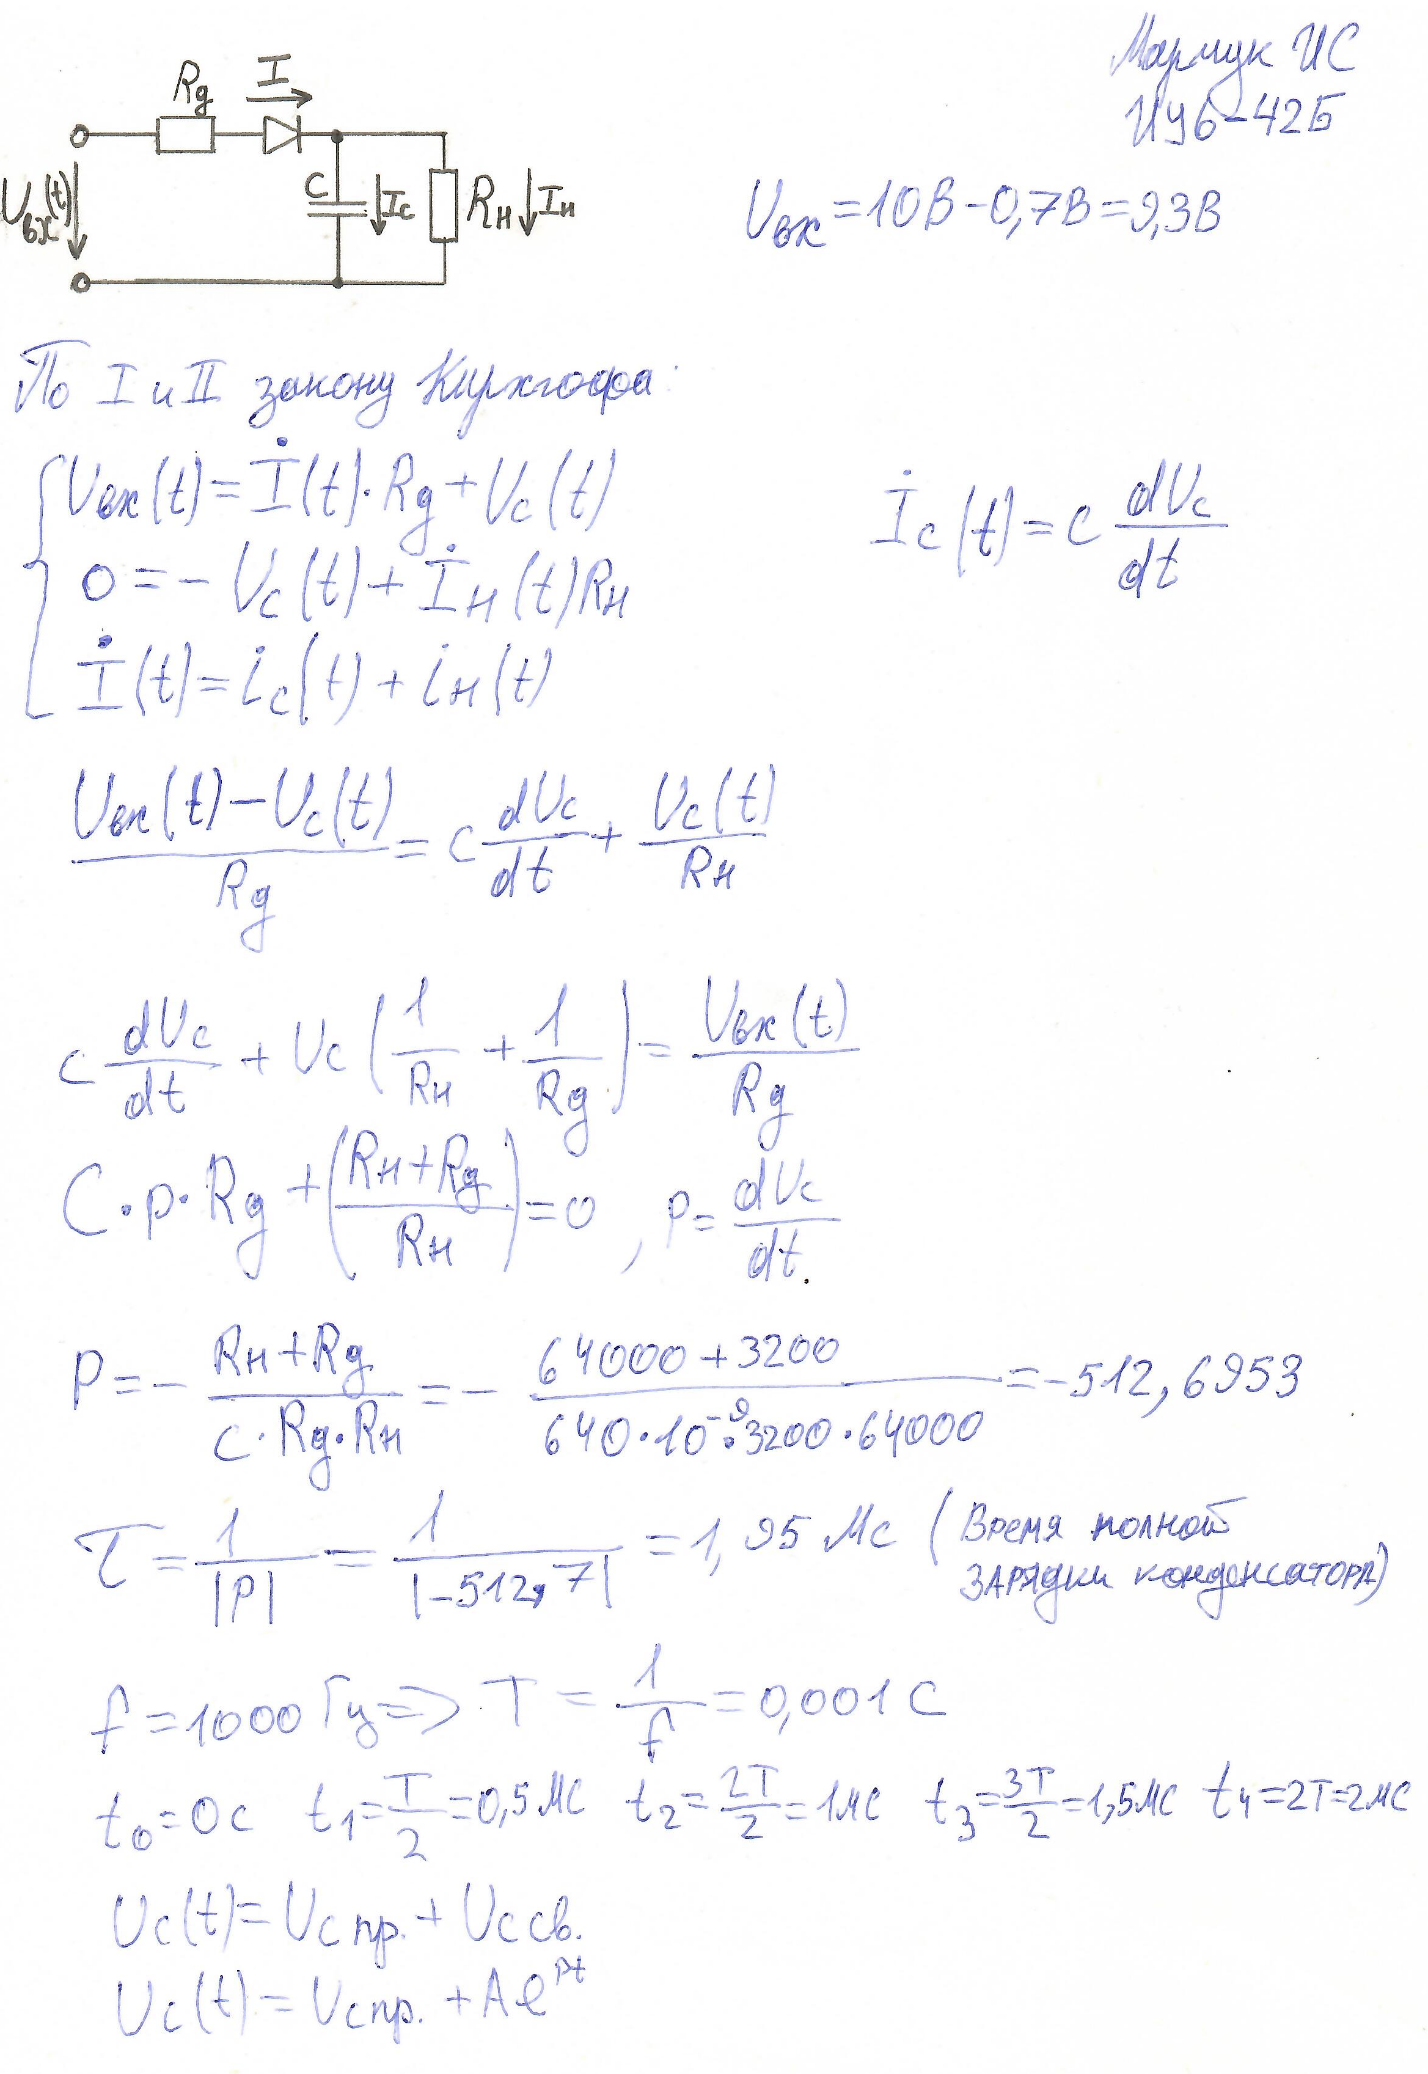 Марчук ИС
ИУ6-42Б
Rg I
Uвх(t) C Ic Rн Iн
Uвх = 10В - 0,7В = 9,3В
По I и II закону Кирхгофа
Uвх(t) = İ(t)·Rg + Uc(t)
0 = - Uc(t) + İн(t)Rн
İ(t) = ic(t) + iн(t)
İc(t) = C dUc/dt
(Uвх(t) - Uc(t))/Rg = C dUc/dt + Uc(t)/Rн
C dUc/dt + Uc(1/Rн + 1/Rg) = Uвх(t)/Rg
C·p·Rg + ((Rн+Rg)/Rн) = 0, P = dUc/dt.
P = - (Rн+Rg)/(C·Rg·Rн) = - (64000+3200)/(640·10⁻⁹·3200·64000) = -512,6953
τ = 1/|P| = 1/|-512,7| = 1,95 мс (Время полной
зарядки конденсатора)
f = 1000 Гц => T = 1/f = 0,001 с
t₀ = 0с t₁ = T/2 = 0,5 мс t₂ = 2T/2 = 1мс t₃ = 3T/2 = 1,5мс t₄ = 2T = 2мс
Uc(t) = Uc пр. + Uc св.
Uc(t) = Uc пр. + Ae^pt